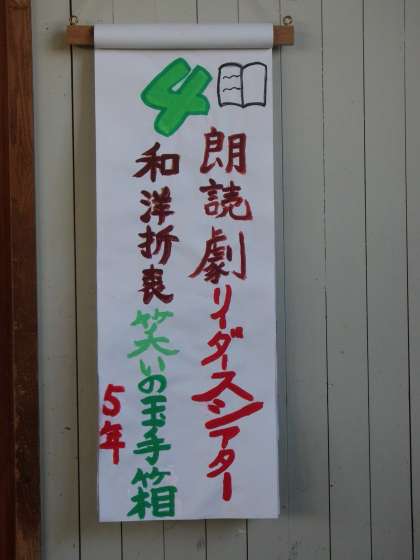 4
朗読劇リイダースシアター
和洋折衷笑いの玉手箱
5年